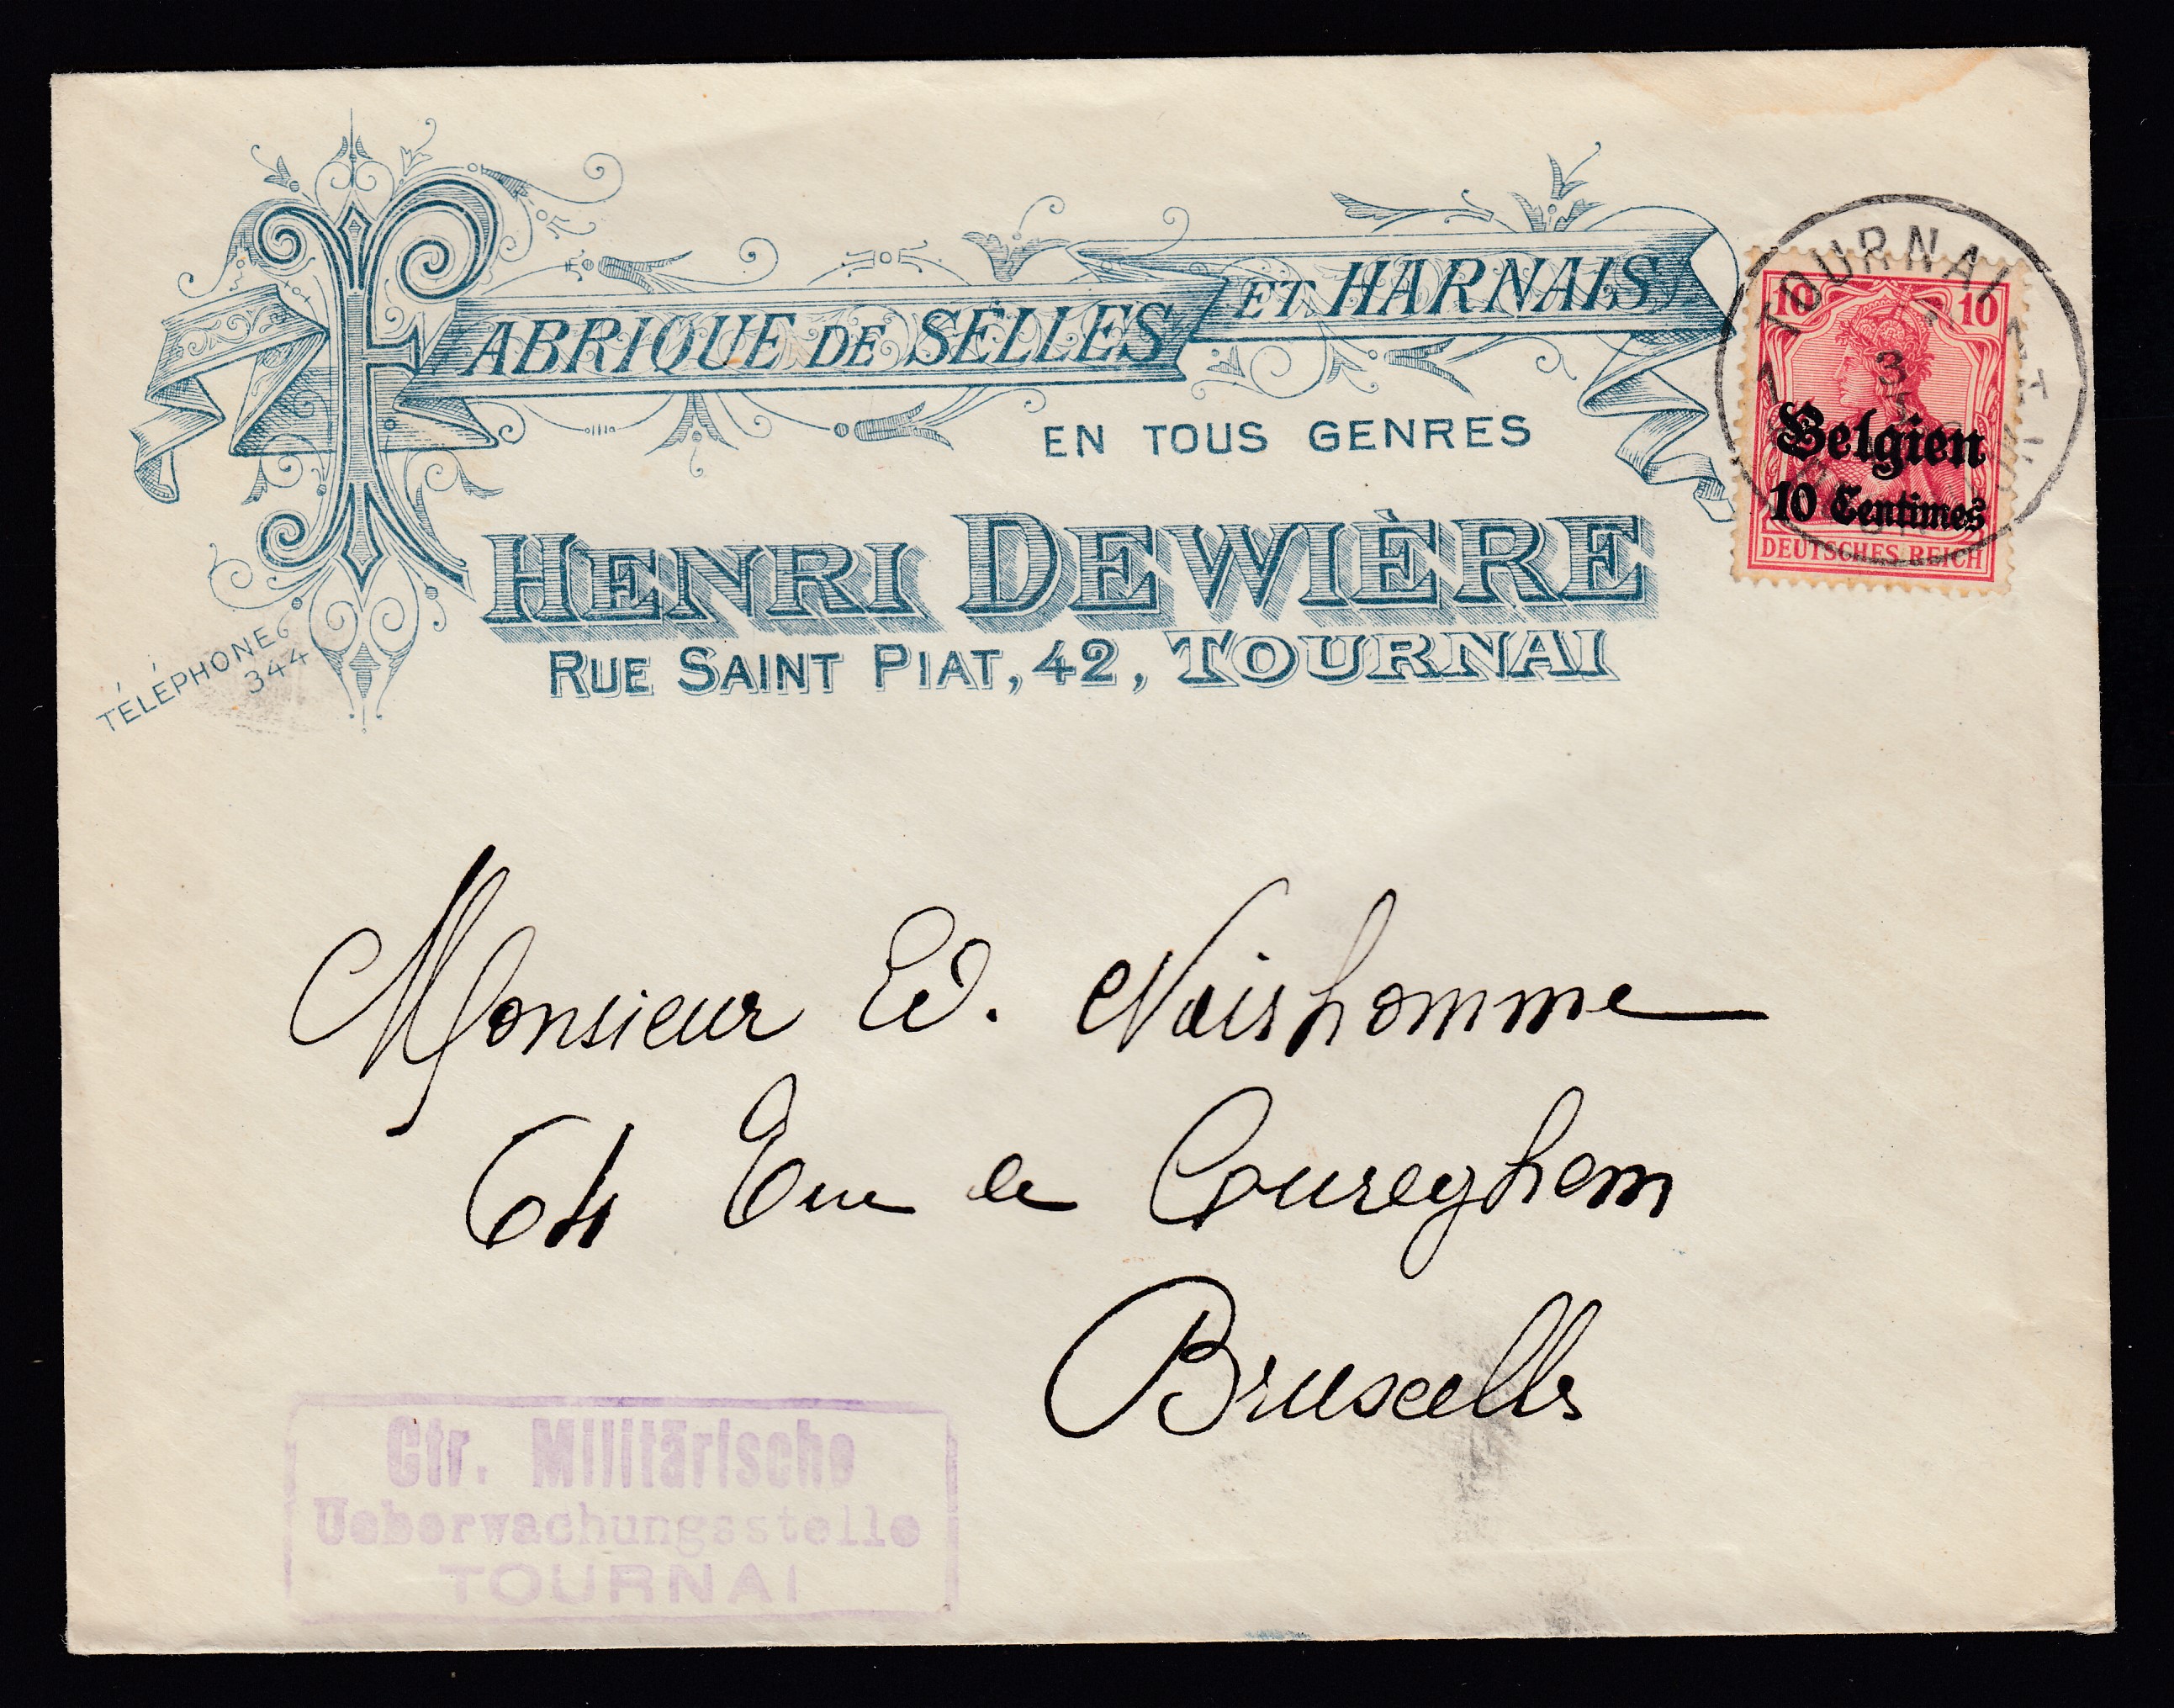 FABRIQUE DE SELLES ET HARNAIS
EN TOUS GENRES
HENRI DEWIÈRE
RUE SAINT PIAT, 42, TOURNAI
TÉLÉPHONE
344
TOURNAI
10 10
3
Belgien
10 Centimes
DEUTSCHES REICH
Monsieur Ed. Naishomme
64 Rue de Cureghem
Bruxelles
Ctr. Militärische
Ueberwachungsstelle
TOURNAI